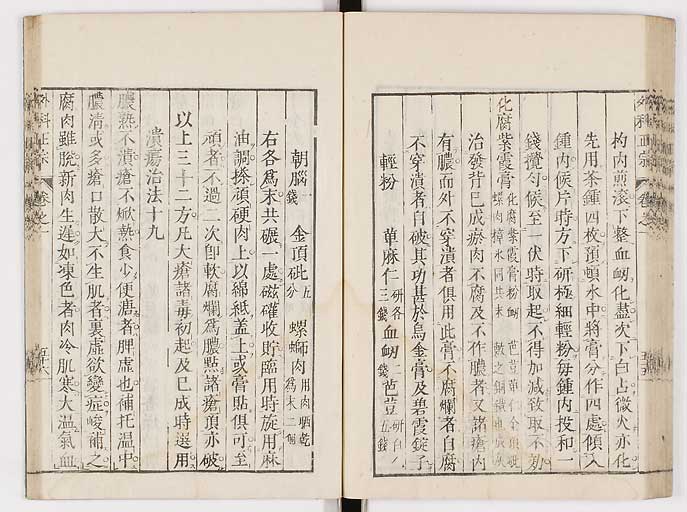 杓內煎滾下整血竭化盡次下白占微火亦化
先用茶鍾四枚預頓水中將膏分作四處傾入
鍾內候片時方下研極細輕粉每鍾內投和一
錢攪勻候至一伏時取起不得加減致取不効
化腐紫霞膏 化腐紫霞膏粉竭 芭荳萆仁金頂砒 螺肉樟水同共末 敷之銅鐵也成灰
治發背已成瘀肉不腐及不作膿者又諸瘡內
有膿而外不穿潰者俱用此膏不腐爛者自腐
不穿潰者自破其功甚於烏金膏及碧霞錠子
輕粉 萆麻仁 研各三錢 血竭 二錢 芭荳 研白五錢
朝腦 一錢 金頂砒 五分 螺螄肉 用肉晒乾爲末二個
右各爲末共碾一處磁罐收貯臨用時旋用麻
油調搽頑硬肉上以綿紙蓋上或膏貼俱可至
頑者不過二次卽軟腐爛爲膿點諸瘡頂亦破
以上三十二方凡大瘡諸毒初起及已成時選用
潰瘍治法十九
膿熟不潰瘡不焮熱食少便溏者脾虛也補托溫中
膿淸或多瘡口散大不生肌者裏虛欲變症峻補之
腐肉雖脫新肉生遲如凍色者肉冷肌寒大溫氣血
外科正宗 卷之一